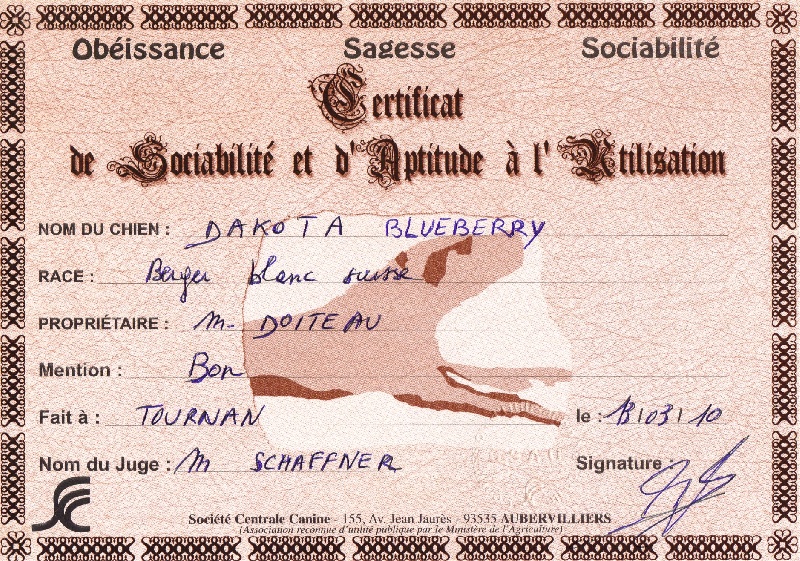 Obéissance Sagesse Sociabilité
Certificat
de Sociabilité et d'Aptitude à l'Utilisation
NOM DU CHIEN : DAKOTA BLUEBERRY
RACE : Berger blanc suisse
PROPRIÉTAIRE : M. DOITEAU
Mention : Bon
Fait à : TOURNAN le : 13/03/10
Nom du Juge : M SCHAFFNER Signature :
Société Centrale Canine - 155, Av. Jean Jaurès - 93535 AUBERVILLIERS
(Association reconnue d'utilité publique par le Ministère de l'Agriculture)